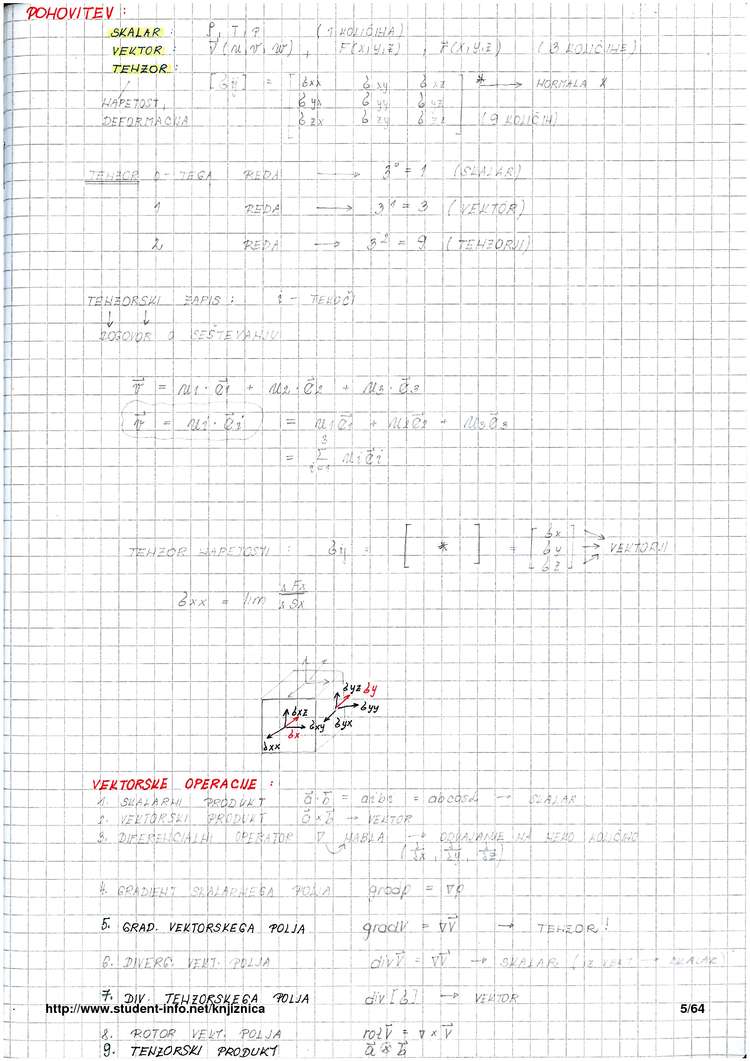 PONOVITEV :
SKALAR : ρ, T, p (1 KOLIČINA)
VEKTOR : v⃗ (u, v, w) , F(x,y,z) , r⃗(x,y,z) (3 KOLIČINE)
TENZOR :
[σij] = [σxx σxy σxz] * → NORMALA X
NAPETOST, σyx σyy σyz
DEFORMACIJA σzx σzy σzz (9 KOLIČIN)
TENZOR 0-TEGA REDA → 3⁰ = 1 (SKALAR)
1 REDA → 3¹ = 3 (VEKTOR)
2 REDA → 3² = 9 (TENZORJI)
TENZORSKI ZAPIS : i - TEKOČI
↓ ↓
DOGOVOR O SEŠTEVANJU
v⃗ = u1 · e⃗1 + u2 · e⃗2 + u3 · e⃗3
v⃗ = ui · e⃗i = u1e⃗1 + u2e⃗2 + u3e⃗3
3
= Σ uie⃗i
i=1
TENZOR NAPETOSTI : σij = [ * ] = [σx σy σz] → VEKTORJI
σxx = lim ΔFx / ΔSx
σyz σy
σxz σyy
σxy σyx
σx
σxx
VEKTORSKE OPERACIJE :
1. SKALARNI PRODUKT a⃗·b⃗ = aibi = abcosα → SKALAR
2. VEKTORSKI PRODUKT a⃗×b⃗ → VEKTOR
3. DIFERENCIALNI OPERATOR ∇ NABLA → ODVAJANJE NA NEKO KOLIČINO
(∂/∂x , ∂/∂y , ∂/∂z)
4. GRADIENT SKALARNEGA POLJA gradp = ∇p
5. GRAD. VEKTORSKEGA POLJA gradv⃗ = ∇v⃗ → TENZOR !
6. DIVERG. VEKT. POLJA divv⃗ = ∇v⃗ → SKALAR (IZ VEKT → SKALAR)
7. DIV. TENZORSKEGA POLJA div[σ] → VEKTOR
http://www.student-info.net/knjiznica 5/64
8. ROTOR VEKT. POLJA rotv⃗ = ∇ × v⃗
9. TENZORSKI PRODUKT a⃗ ⊗ b⃗